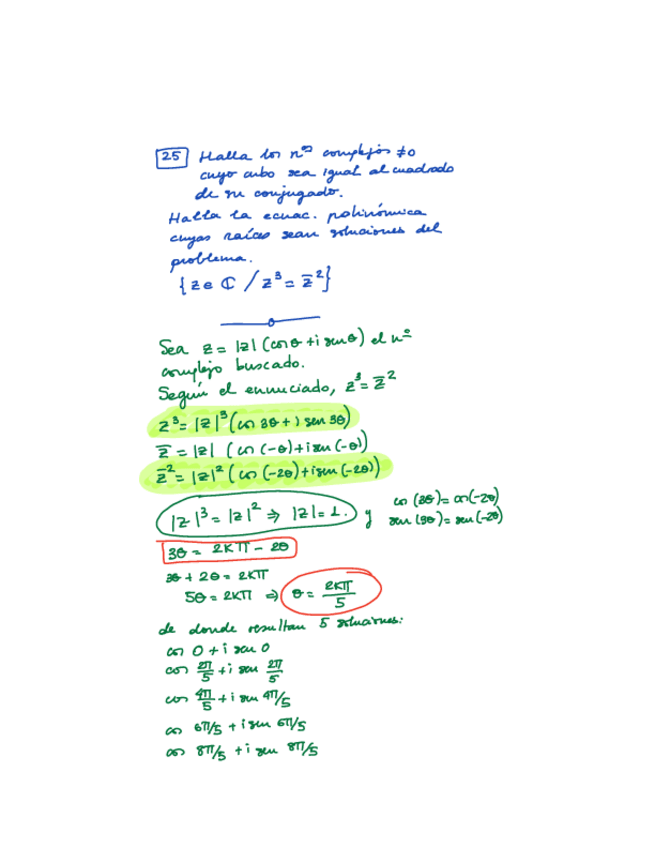 25 Halla los nos complejos ≠0
cuyo cubo sea igual al cuadrado
de su conjugado.
Halla la ecuac. polinómica
cuyas raíces sean soluciones del
problema.
{z e ℂ / z³ = z̄²}
Sea z = |z| (cosθ + i senθ) el nº
complejo buscado.
Según el enunciado, z³ = z̄²
z³ = |z|³ (cos 3θ + i sen 3θ)
z̄ = |z| (cos (-θ) + i sen (-θ))
z̄² = |z|² (cos (-2θ) + i sen (-2θ))
|z|³ = |z|² ⇒ |z| = 1. y cos (3θ) = cos (-2θ)
sen (3θ) = sen (-2θ)
3θ = 2Kπ - 2θ
3θ + 2θ = 2Kπ
5θ = 2Kπ ⇒ θ = 2Kπ/5
de donde resultan 5 soluciones:
cos 0 + i sen 0
cos 2π/5 + i sen 2π/5
cos 4π/5 + i sen 4π/5
cos 6π/5 + i sen 6π/5
cos 8π/5 + i sen 8π/5